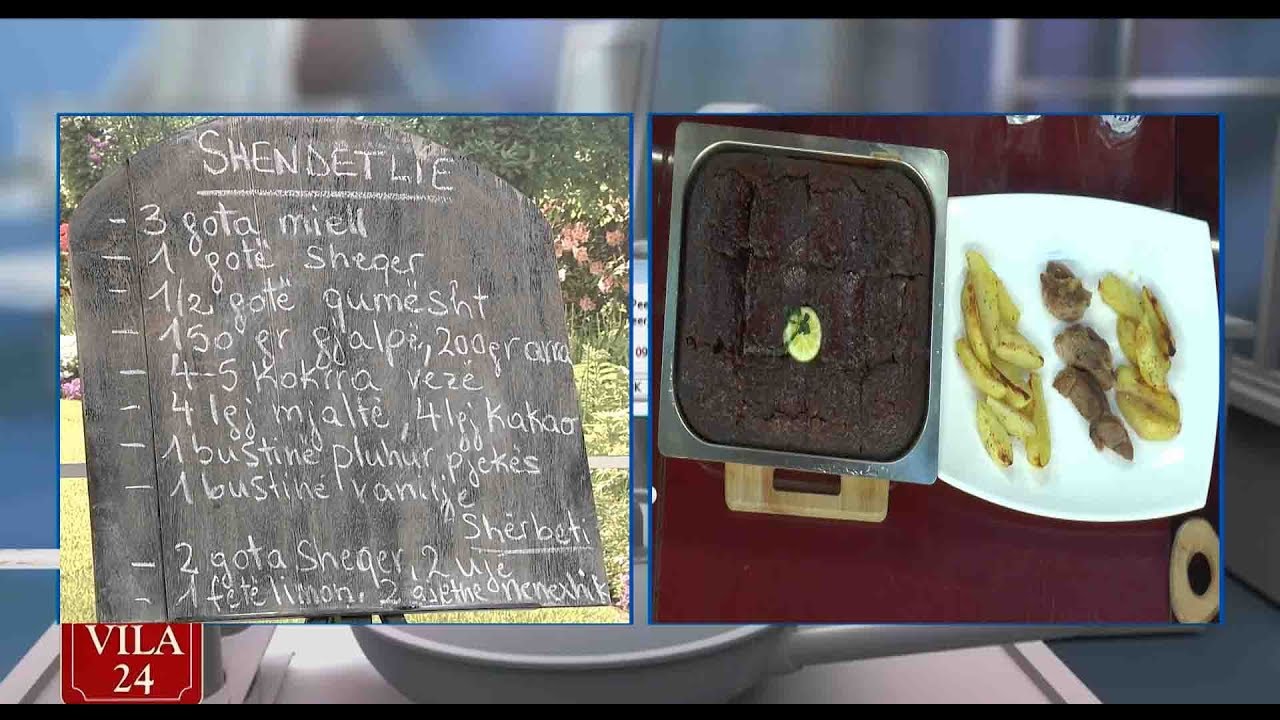 SHENDETLIE
- 3 gota miell
- 1 gotë sheqer
- 1/2 gotë qumësht
- 150 gr gjalpë, 200gr arra
- 4-5 kokrra vezë
- 4 lgj mjaltë, 4 lgj kakao
- 1 bustinë pluhur pjekës
- 1 bustinë vanilje
Shërbeti
- 2 gota sheqer, 2 ujë
- 1 fetë limon. 2 gjethe nenexhik
VILA
24